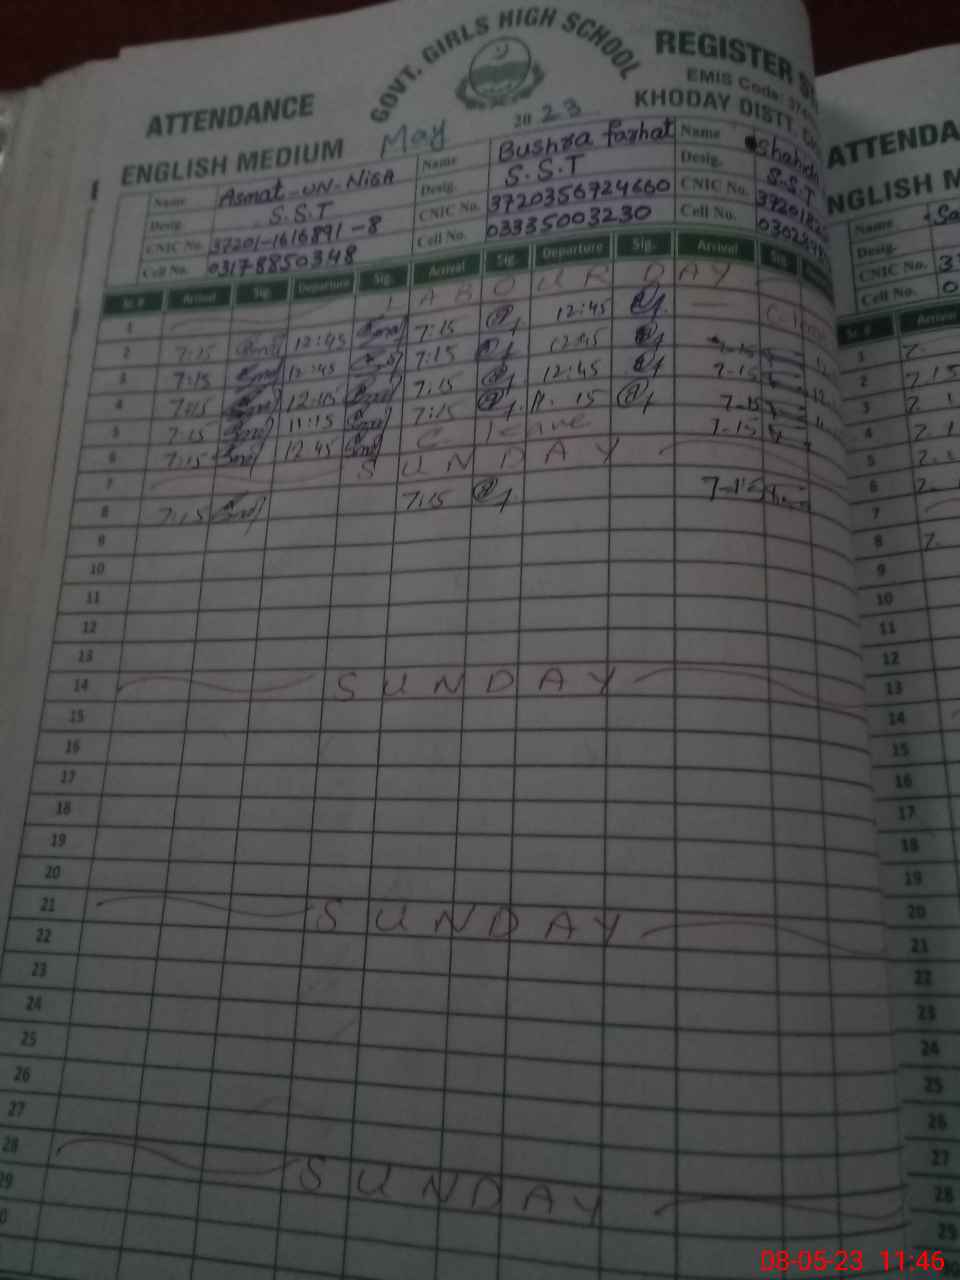 GOVT. GIRLS HIGH SCHOOL
ATTENDANCE REGISTER
EMIS Code:
ENGLISH MEDIUM May 2023 KHODAY DISTT.
Name Asmat-UN-NiSA Name Bushra farhat Name
Desig. S.S.T Desig. S.S.T Desig. S.S.T
CNIC No. 37201-1616891-8 CNIC No. 3720356724660 CNIC No.
Cell No. 03178850348 Cell No. 03335003230 Cell No.
Sr.# Arrival Sig. Departure Sig. Arrival Sig. Departure Sig. Arrival Sig.
1 LABOUR DAY
2 7:15 12:45 7:15 12:45
3 7:15 12:45 7:15 12:45 7-15
4 7:15 12:45 7:15 12:45 7-15
5 7:15 11:15 7:15 11.15 7-15
6 7:15 12 45 C. leave 7-15
7 SUNDAY
8 7:15 7:15 7-15
9
10
11
12
13
14 SUNDAY
15
16
17
18
19
20
21 SUNDAY
22
23
24
25
26
27
28 SUNDAY
29
ATTENDA
NGLISH M
Name
Desig.
CNIC No.
Cell No.
Sr.# Arrival
1 7.
2 7.15
3 7.1
4 7.1
5
6
7
8 7.
9
10
11
12
13
14
15
16
17
18
19
20
21
22
23
24
25
26
27
28
29
08-05-23 11:46